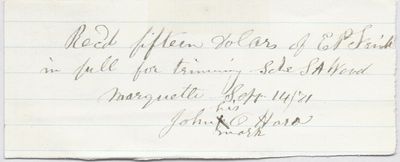 Recd fifteen Dolars of E P Frink
in full for trimming Sch S A Wood
Marquette Sept 14/71
his
John C Hara
mark